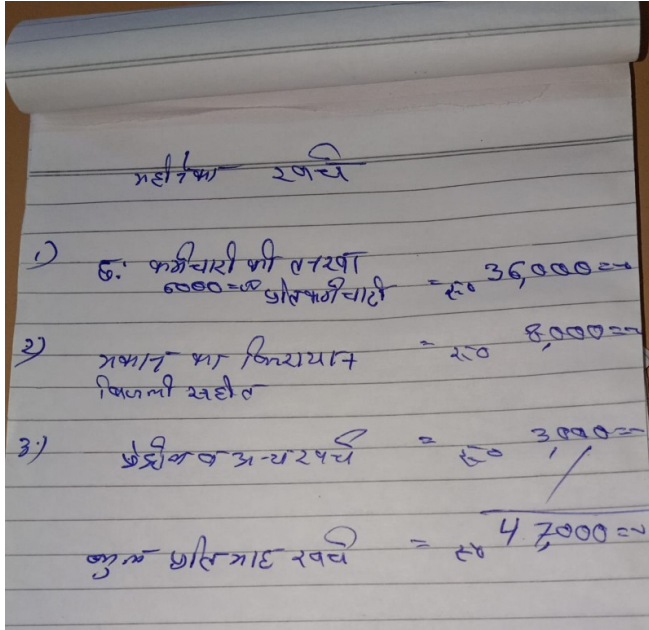 महीने का खर्च
1) छ: कर्मचारी की तनखा
6000=00 प्रति कर्मचारी = रु० 36,000=00
2) मकान का किराया = रु० 8,000=00
बिजली सहीत
3) व अन्य खर्च = रु० 3,000=00
कुल प्रति माह खर्च = रु० 47,000=00